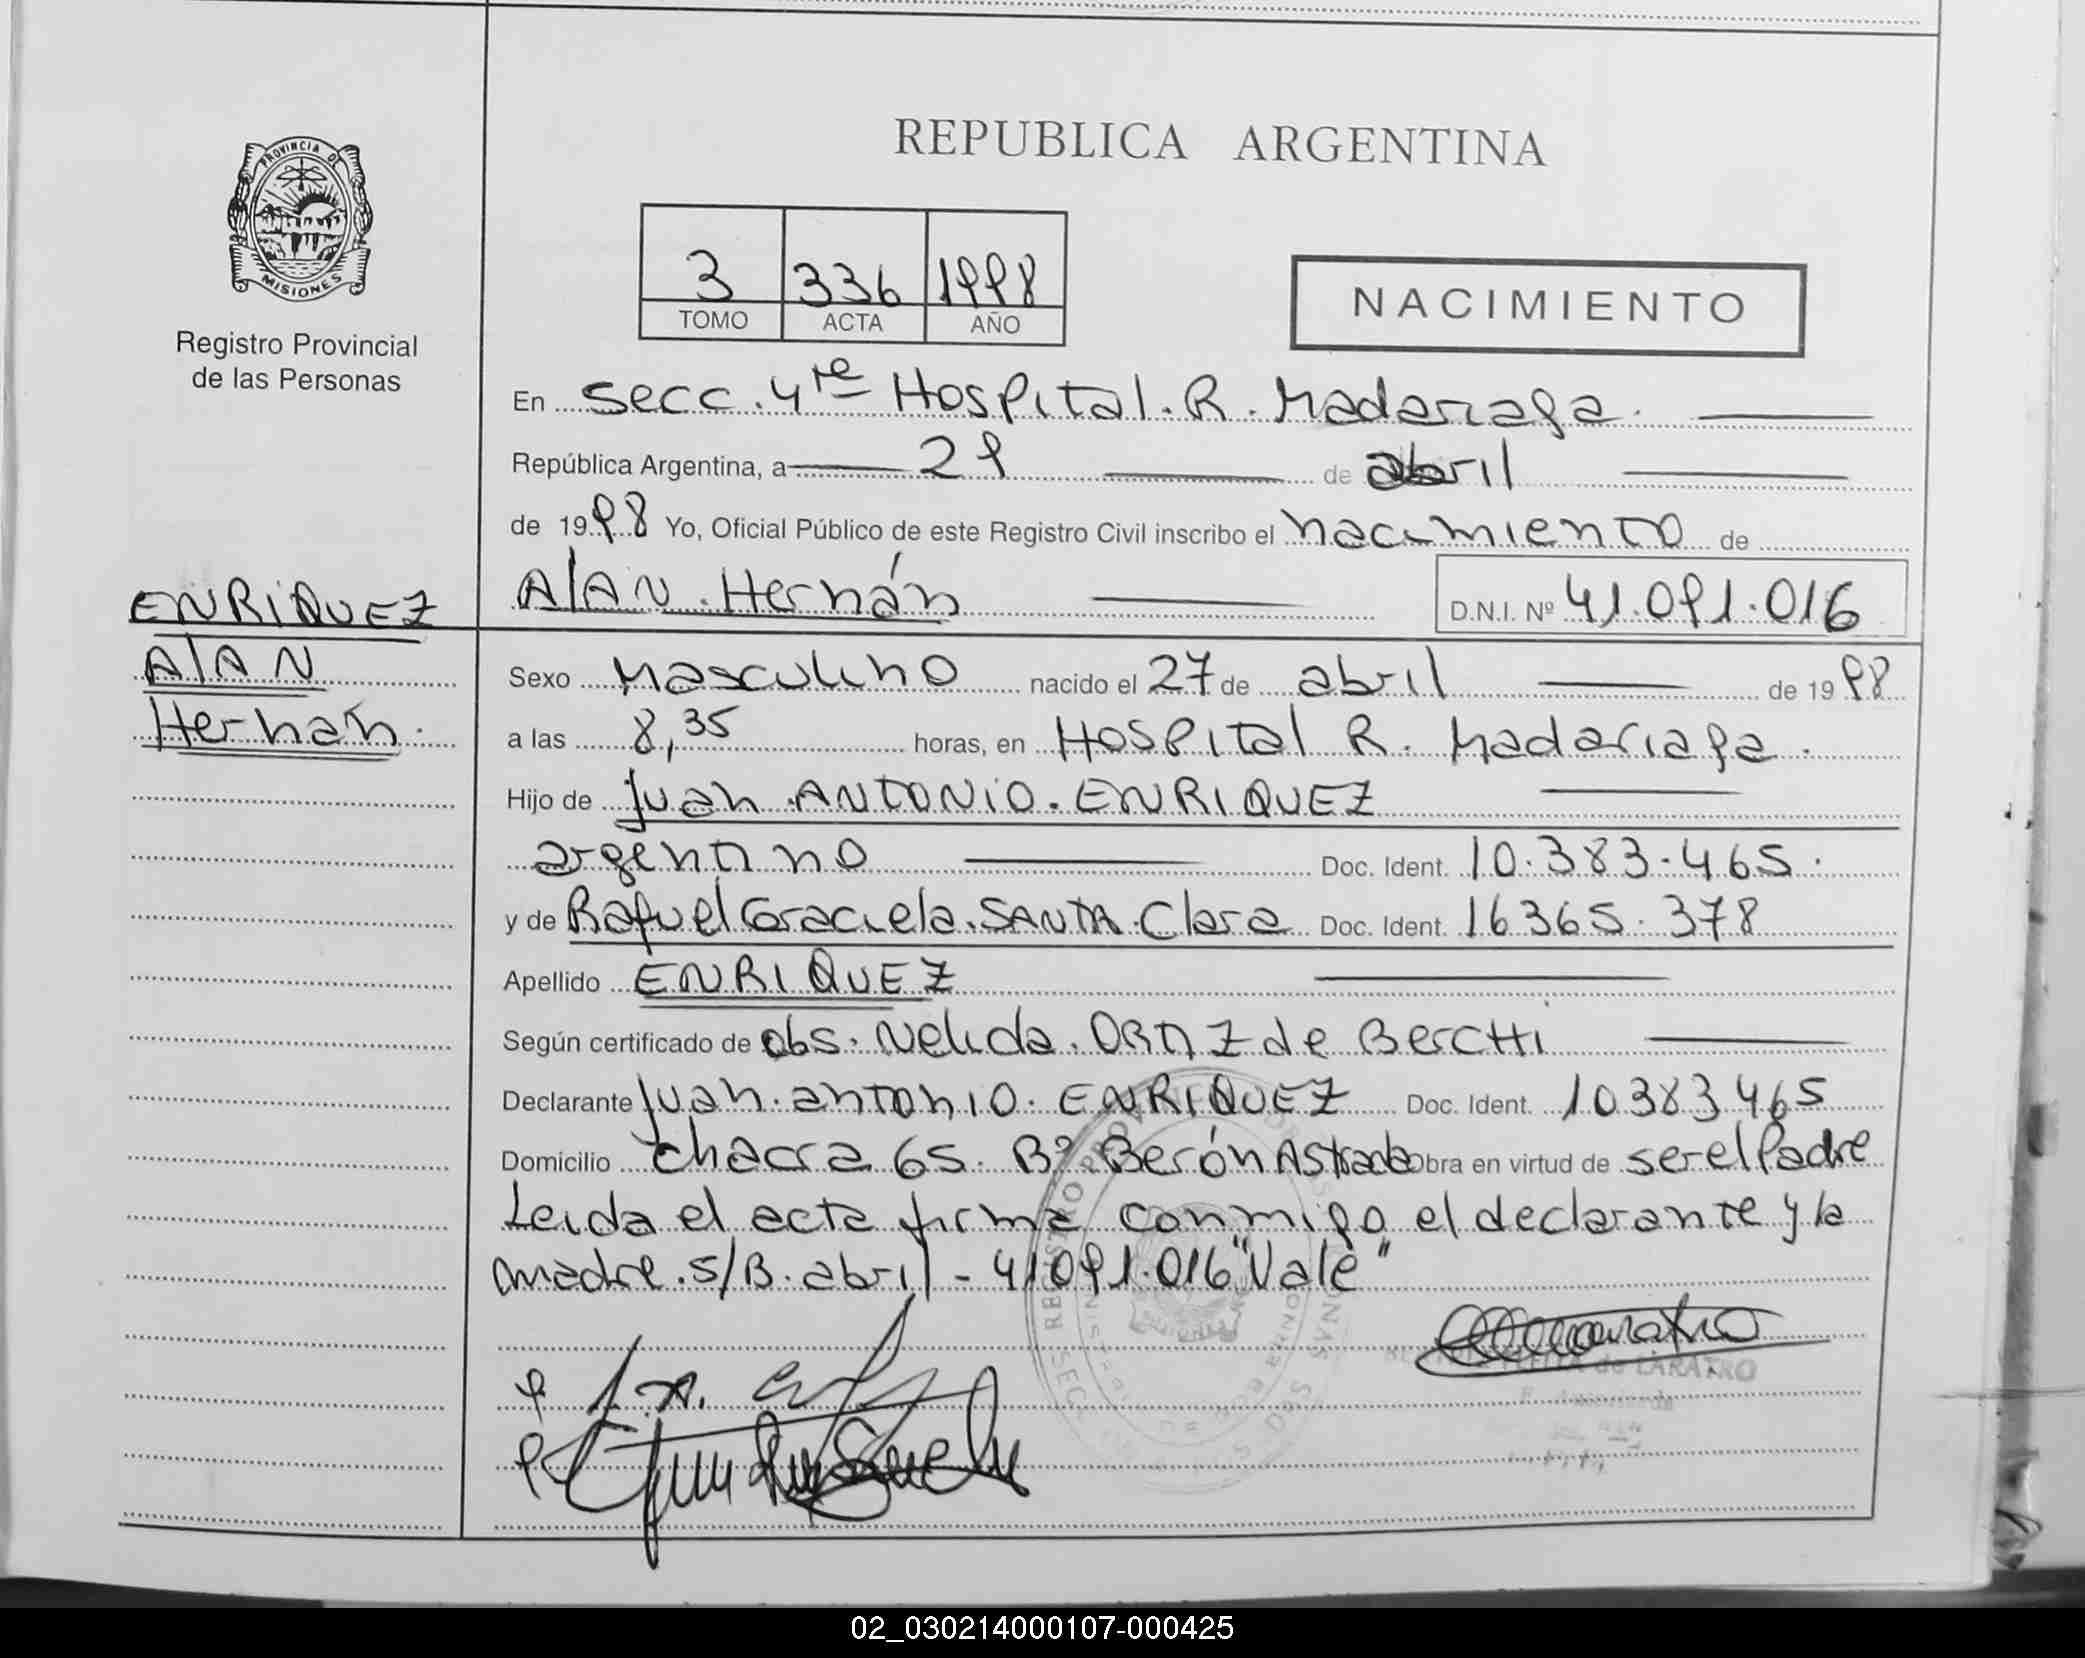 REPUBLICA ARGENTINA
PROVINCIA DE
MISIONES
Registro Provincial
de las Personas
3 336 1998
TOMO ACTA AÑO
NACIMIENTO
En Secc. 4ta Hospital. R. Madariaga.
República Argentina, a 29 de abril
de 1998 Yo, Oficial Público de este Registro Civil inscribo el nacimiento de
AlAN. Hernán D.N.I. Nº 41.091.016
ENRiQUEZ
AlAN
Hernán.
Sexo Masculino nacido el 27 de abril de 1998
a las 8,35 horas, en Hospital R. Madariaga.
Hijo de Juan ANTONiO. ENRIQUEZ
argentino Doc. Ident. 10.383.465.
y de Raquel Graciela. SANTA. Clara Doc. Ident. 16365.378
Apellido ENRIQUEZ
Según certificado de obs. Nelida. ORTIZ de BercHi
Declarante Juan. antonio. ENRIQUEZ Doc. Ident. 10383465
Domicilio Chacra 65. Bº. Berón Astrada Obra en virtud de ser el Padre
Leida el acta firma conmigo el declarante y la
madre. S/B. abril - 41091.016 "Vale"
de LARATRO
02_030214000107-000425